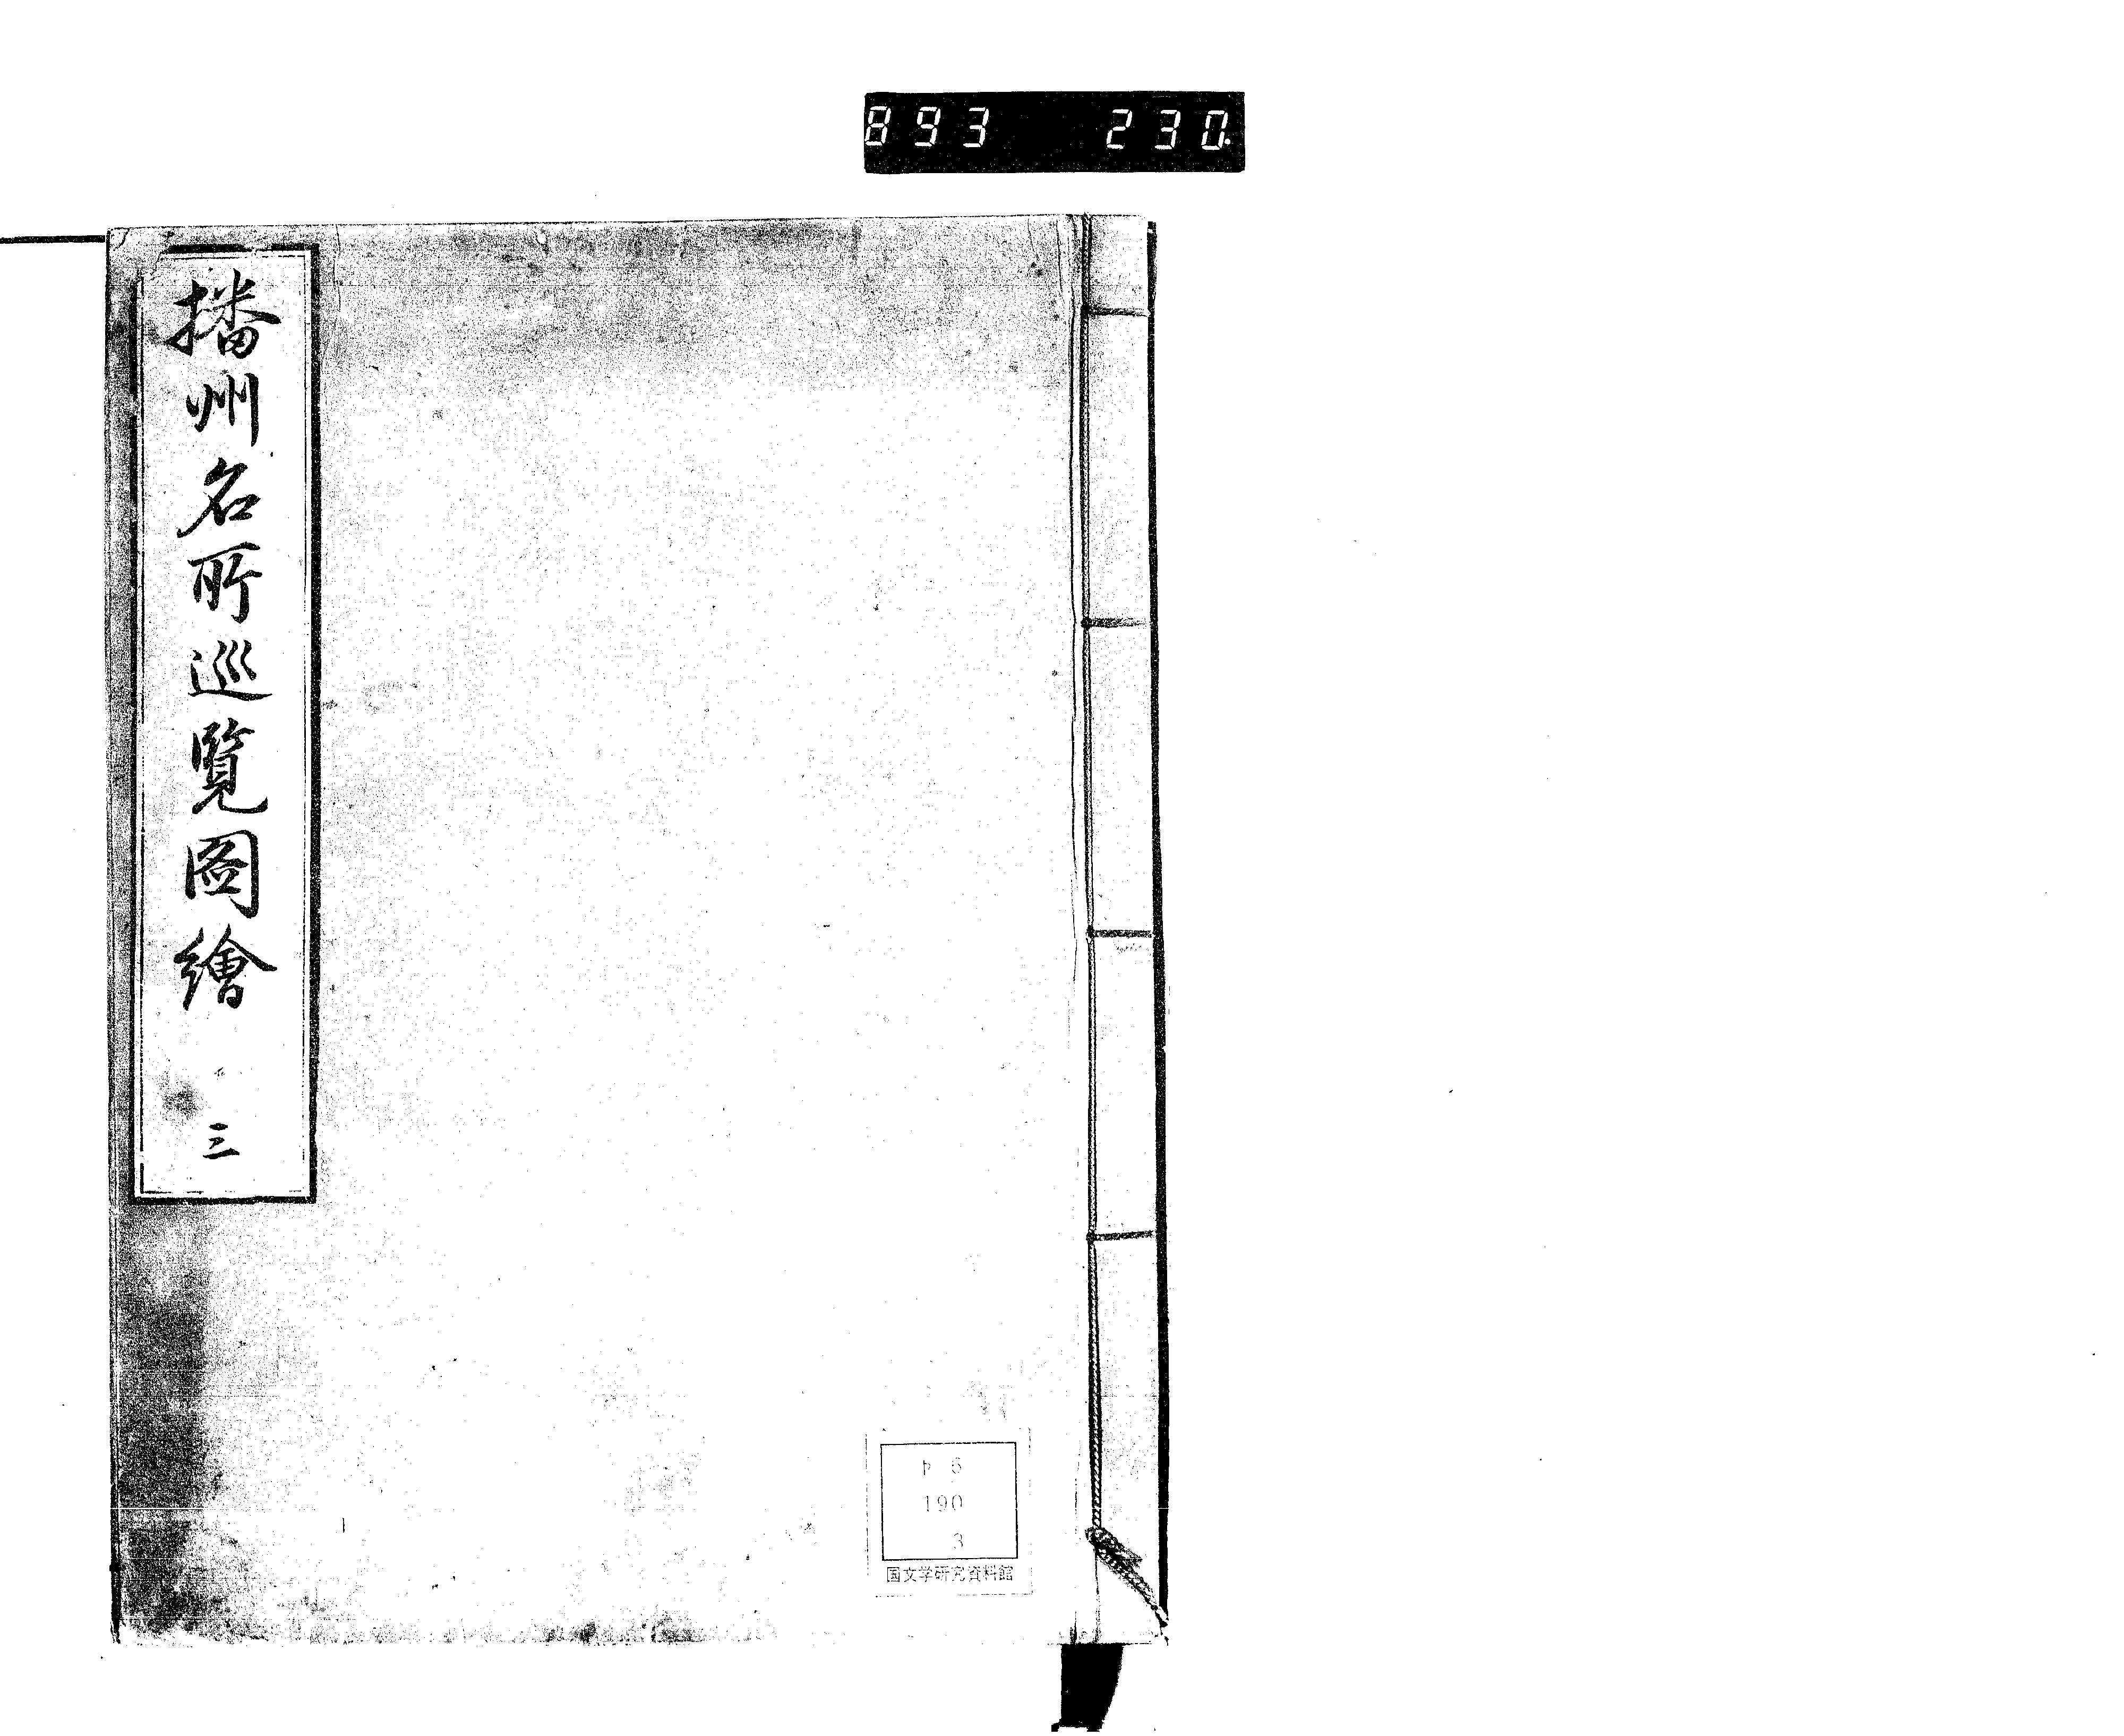 893 230.
播州名所巡覧圖繪 三
ヤ6
190
3
国文学研究資料館